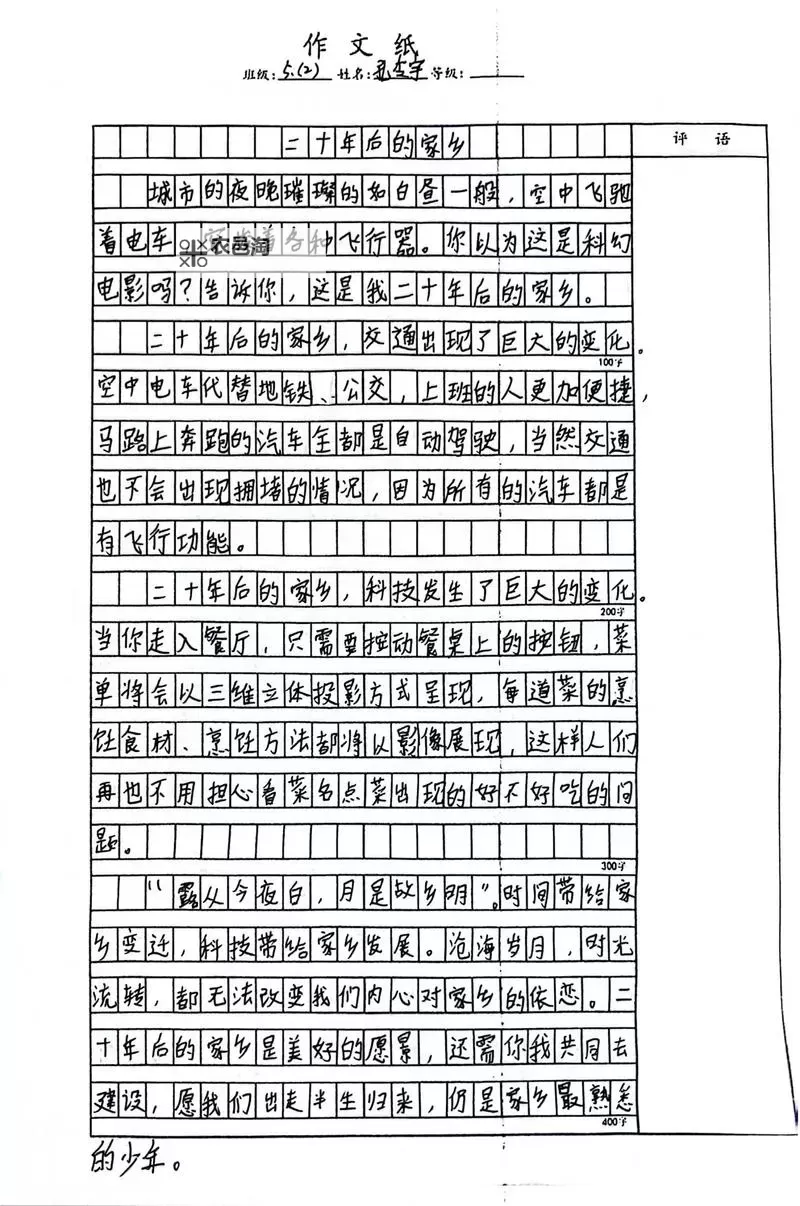 作 文 纸
班级: 5.(2) 姓名: 孔 宇 等级:
二十年后的家乡
评 语
城市的夜晚璀璨的如白昼一般，空中飞驰
着电车 农邑淘 各种飞行器。你以为这是科幻
电影吗？告诉你，这是我二十年后的家乡。
二十年后的家乡，交通出现了巨大的变化。
100字
空中电车代替地铁、公交，上班的人更加便捷，
马路上奔跑的汽车全都是自动驾驶，当然交通
也不会出现拥堵的情况，因为所有的汽车都是
有飞行功能。
二十年后的家乡，科技发生了巨大的变化。
200字
当你走入餐厅，只需要按动餐桌上的按钮，菜
单将会以三维立体投影方式呈现，每道菜的烹
饪食材、烹饪方法都将以影像展现，这样人们
再也不用担心看菜名点菜出现的好不好吃的问
题。
300字
“露从今夜白，月是故乡明”。时间带给家
乡变迁，科技带给家乡发展。沧海岁月，时光
流转，都无法改变我们内心对家乡的依恋。二
十年后的家乡是美好的愿景，还需你我共同去
建设，愿我们出走半生归来，仍是家乡最熟悉
400字
的少年。